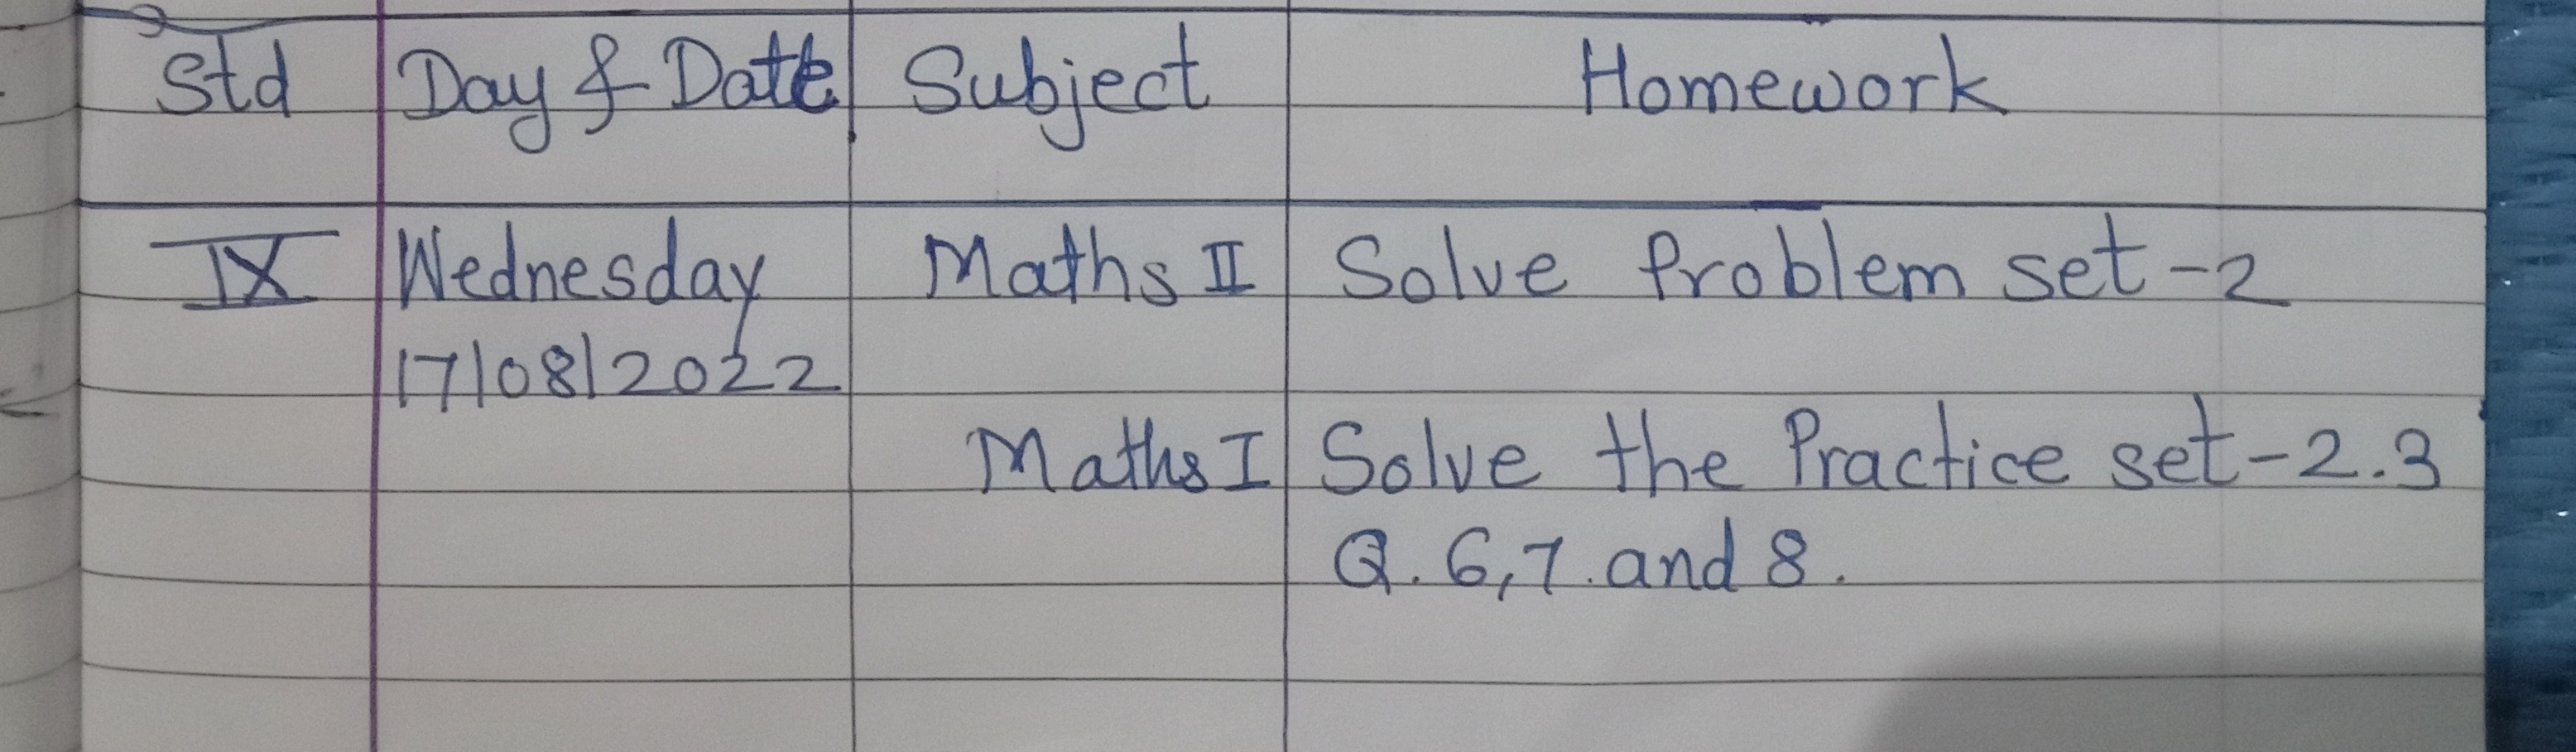 Std Day & Date Subject Homework
IX Wednesday Maths II Solve Problem set - 2
17/08/2022
Maths I Solve the Practice set - 2.3
Q. 6, 7 and 8.